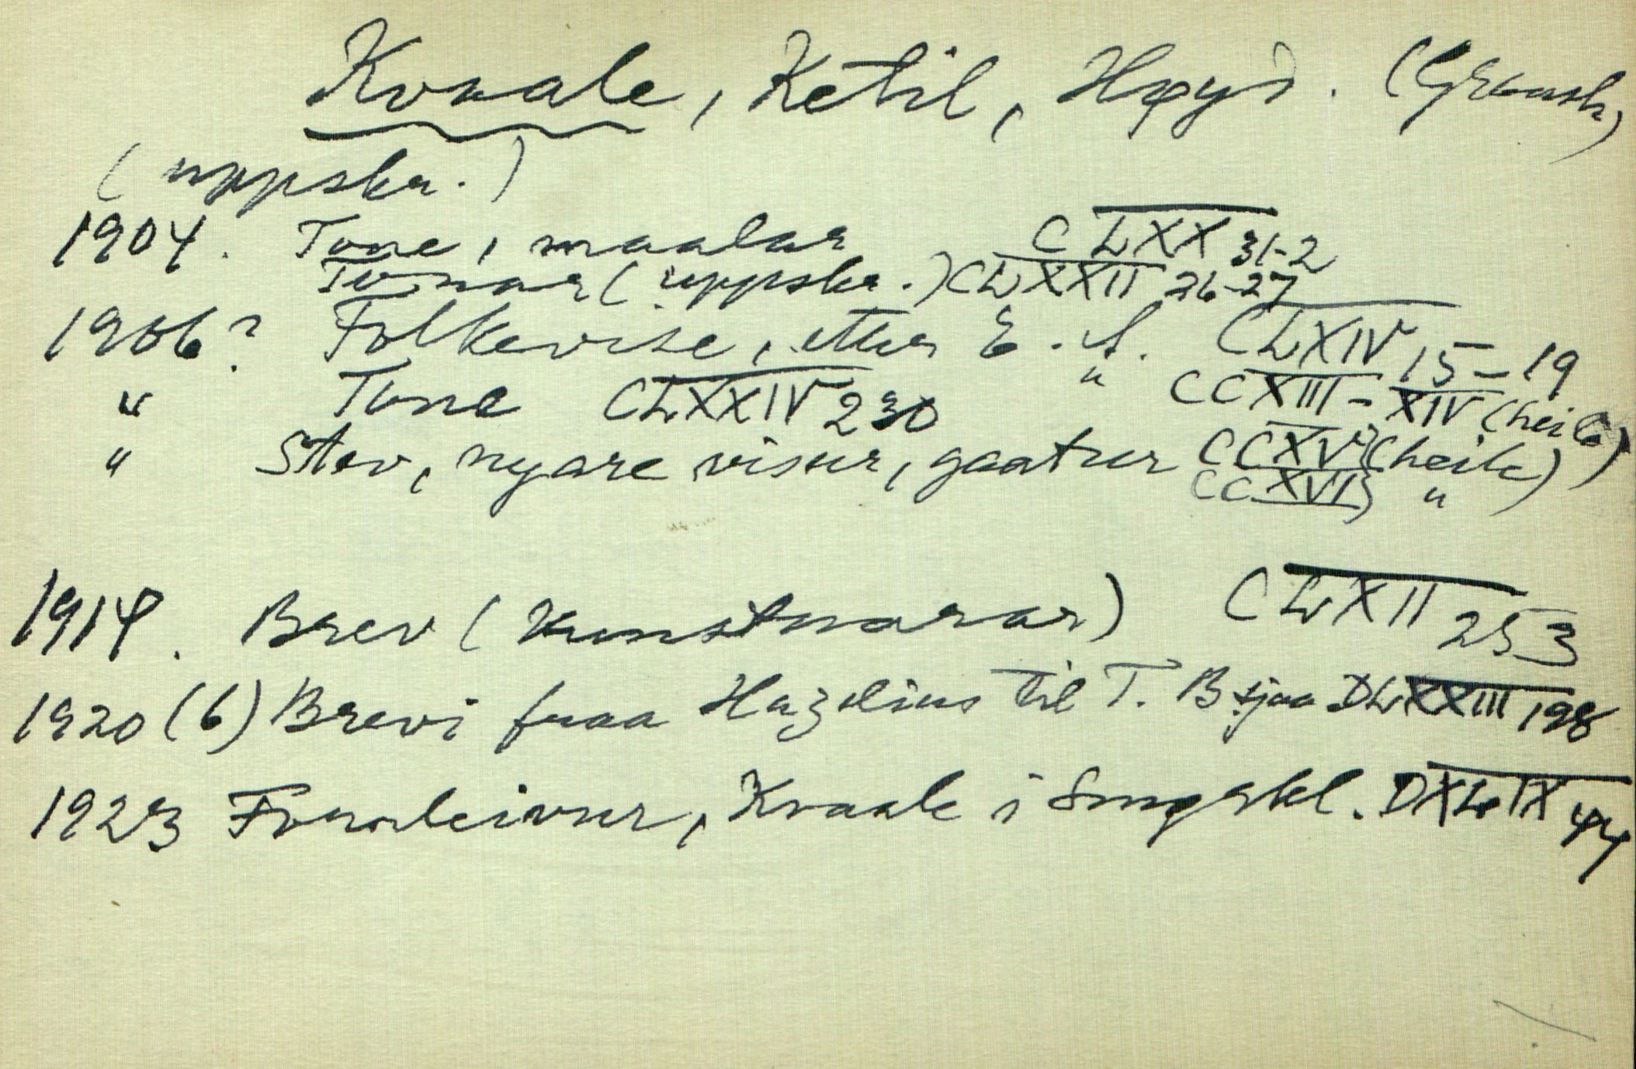 Kvaale, Ketil, Høyd.
(uppskr.)
1904. Tone, maalar CLXX 31-2
Tonar (uppskr.) CLXXII 26-27
1906? Folkevise, etter E. CLXIV 15-19
" Tone CLXXIV 230 " CCXIII - XIV (heile)
" Stev, nyare visur, gaatur CCXV (heile)
CCXVI "
1914. Brev (Kunstnarar) CLXII 253
1920 (6) Brevi fraa Hazelius til T. B sjaa DLXXXIII 198
1923 Fornleivur, Kvaale i DXLIX 44